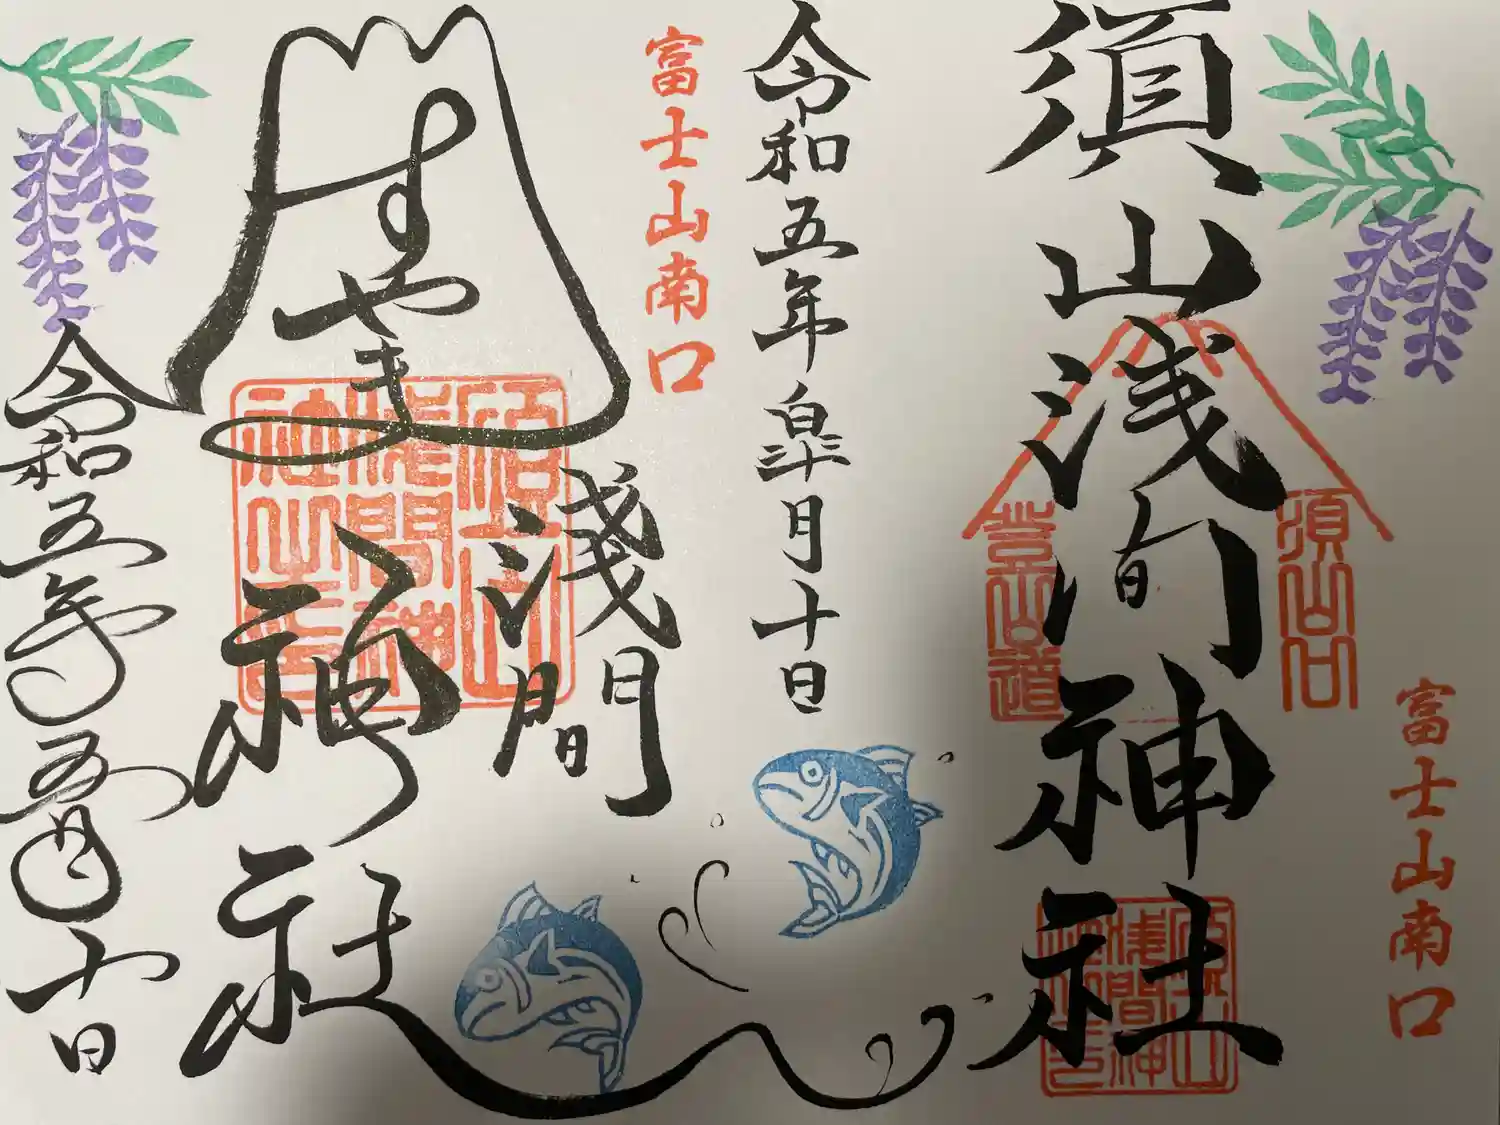 須山浅間神社
須山口
登山道
富士山南口
令和五年皐月十日
富士山南口
すやま
淺間
神社
須山
浅間神
社之印
令和五年五月十日